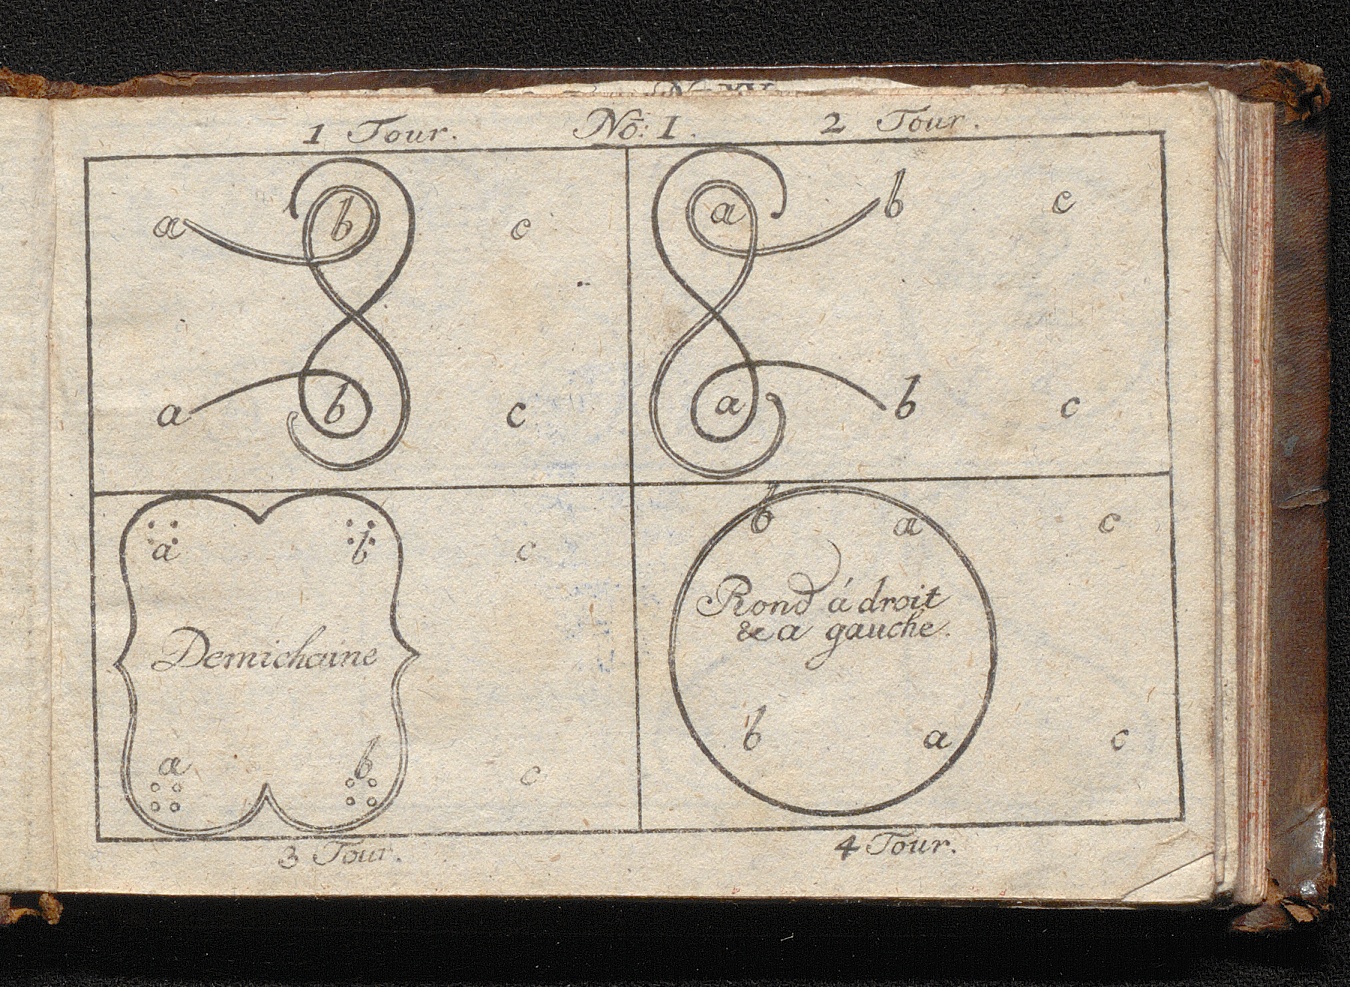 1 Tour. No: 1. 2 Tour.
a b c
a b c
a b c
a b c
a b c
Demichaine
a b c
b a c
Rond á droit
& a gauche.
b a c
3 Tour. 4 Tour.